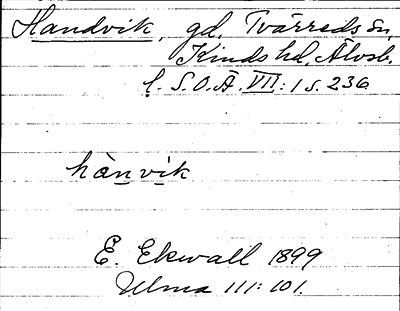 Handvik, gd, Tvärreds sn,
Kinds hd, Älvsb.
l. S.O.Ä. VII:1 s. 236
hànvik
E. Ekwall 1899
Ulma 111:101.